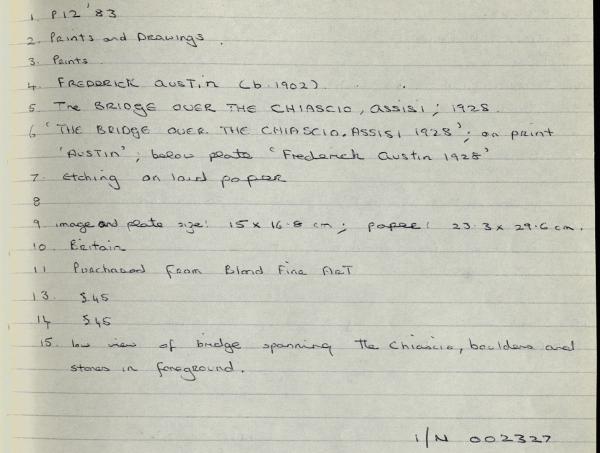 1. P12 '83
2. Prints and Drawings.
3. Prints
4. FREDERICK AUSTIN (b. 1902).
5. The BRIDGE OVER THE CHIASCIO, ASSISI; 1928.
6. 'THE BRIDGE OVER THE CHIASCIO, ASSISI 1928'; on print
'AUSTIN'; below plate 'Frederick Austin 1928'
7. Etching on laid paper
8
9. image and plate size: 15 x 16.8 cm; paper: 23.3 x 29.6 cm.
10. Britain
11 Purchased from Blond Fine ArT
13. £45
14 £45
15. low view of bridge spanning the Chiascio, boulders and
stones in foreground.
I/N 002327